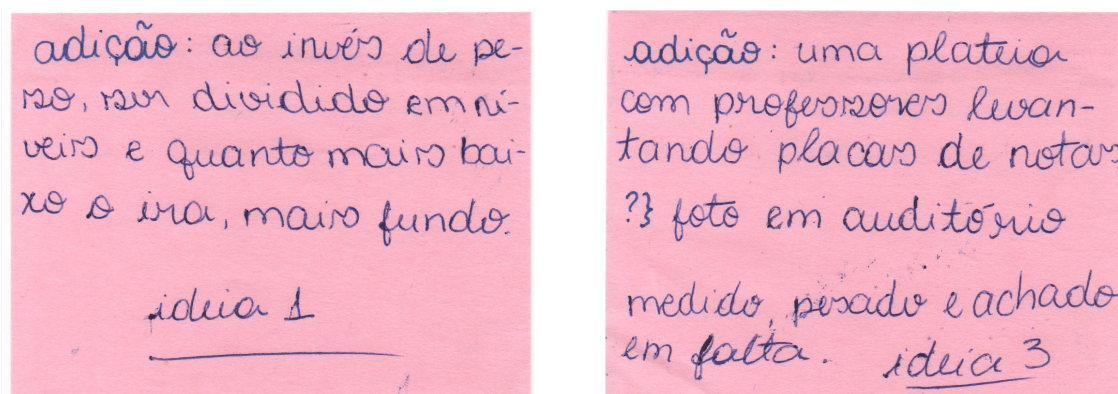 adição: ao invés de pe-
so, ser dividido em ní-
veis e quanto mais bai-
xo o ira, mais fundo.
ideia 1
adição: uma plateia
com professores levan-
tando placas de notas
?} foto em auditório
medido, pesado e achado
em falta.
ideia 3